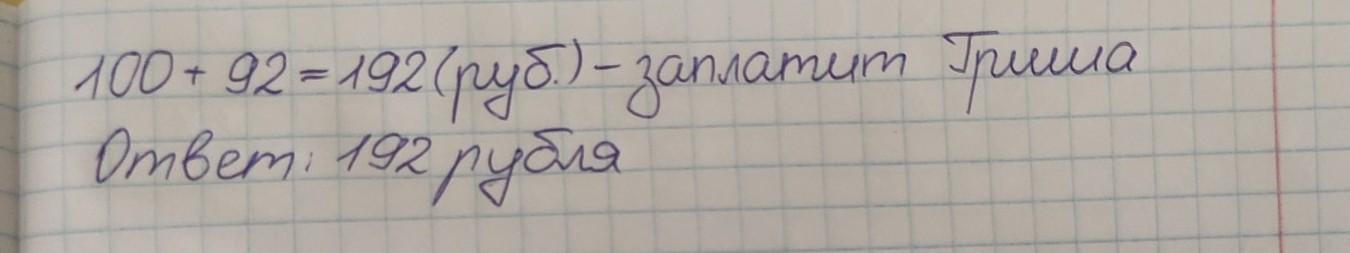 100 + 92 = 192 (руб.) – заплатит Гриша
Ответ: 192 рубля